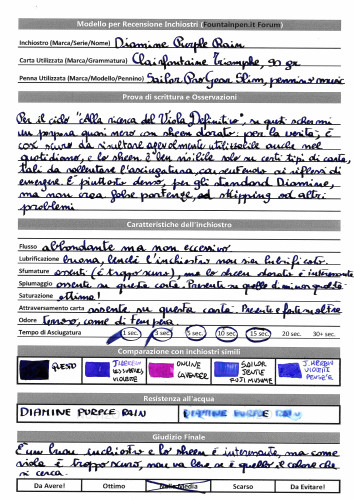 Modello per Recensione Inchiostri (Fountainpen.it Forum)
Inchiostro (Marca/Serie/Nome) Diamine Purple Rain
Carta Utilizzata (Marca/Grammatura) Clairefontaine Triomphe, 90 gr
Penna Utilizzata (Marca/Modello/Pennino) Sailor ProGear Slim, pennino music
Prova di scrittura e Osservazioni
Per il ciclo "Alla ricerca del Viola Definitivo", su questi schermi
un porpora quasi nero con sheen dorato: per la verità, è
così scuro da risultare agevolmente utilizzabile anche nel
quotidiano, e lo sheen è ben visibile solo su certi tipi di carta,
tali da rallentare l'asciugatura, consentendo ai riflessi di
emergere. È piuttosto denso, per gli standard Diamine,
ma non crea false partenze, ad skipping od altri
problemi
Caratteristiche dell'inchiostro
Flusso abbondante ma non eccessivo
Lubrificazione buona, benché l'inchiostro non sia lubrificato
Sfumature assenti (è troppo scuro), ma lo sheen dorato è interessante
Spiumaggio assente su questa carta. Presente su quelle di minor qualità
Saturazione ottima!
Attraversamento carta assente su questa carta. Presente e forte su altre
Odore come di tempera
Tempo di Asciugatura 1 sec. 3 sec. 5 sec. 10 sec. 15 sec. 20 sec. 30+ sec.
Comparazione con inchiostri simili
QUESTO J.HERBIN LES VIOLETTE ONLINE LAVENDER SAILOR JENTLE J.HERBIN VIOLETTE PENSÉE
Resistenza all'acqua
DIAMINE PURPLE RAIN DIAMINE PURPLE RAIN
Giudizio Finale
È un buon inchiostro e lo sheen è interessante, ma come
viola è troppo scuro, non va bene se è quello il colore che
si cerca.
Da Avere! Ottimo Nella Media Scarso Da Evitare!